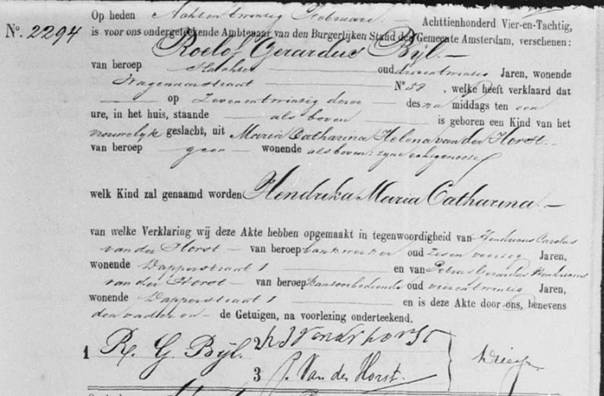 Op heden Achtentwintig Februari Achttienhonderd Vier-en-Tachtig,
N°. 2294 is voor ons ondergeteekende Ambtenaar van den Burgerlijken Stand der Gemeente Amsterdam, verschenen:
Roelof Gerardus Bijl
van beroep oud Jaren, wonende
Wagenaarstraat N° 39, welke heeft verklaard dat
op Zevenentwintig dezer des na middags ten een
ure, in het huis, staande als boven is geboren een Kind van het
vrouwelijk geslacht, uit Maria Catharina Helena van der Horst
van beroep geen wonende als boven, zijne echtgenoote
welk Kind zal genaamd worden Hendrika Maria Catharina
van welke Verklaring wij deze Akte hebben opgemaakt in tegenwoordigheid van Carolus
van der Horst van beroep oud Zes en veertig Jaren,
wonende Dapperstraat 1 en van Petrus Gerardus
van der Horst van beroep oud vierentwintig Jaren,
wonende Dapperstraat 1 en is deze Akte door ons, benevens
den vader en de Getuigen, na voorlezing onderteekend.
1 R. G. Bijl. v d Horst
3 P. Van der Horst.